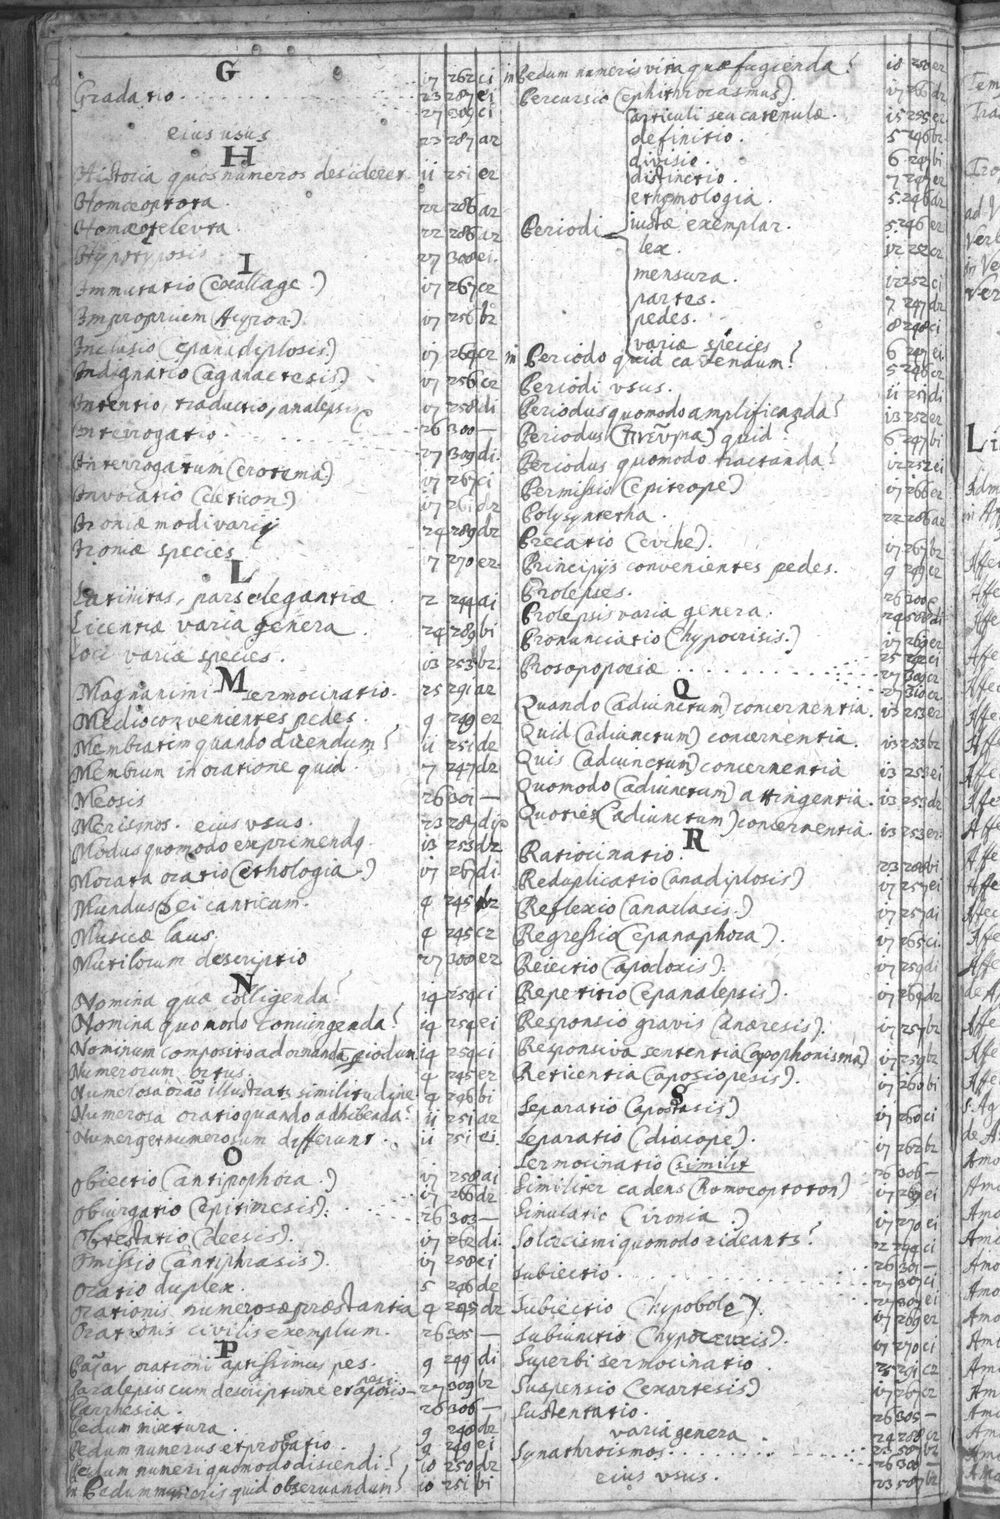 G
Gradatio 17 262 ci
23 287 ei
27 309 ci
eius usus 23 287 az
H
Historia quos numeros desideret 11 251 ez
Homœoptota 22 286 az
Homœoteleuta 22 286 az
Hypotyposis 27 308 ei
I
Immutatio (exallage) 17 267 cz
Improprium (Acyron) 17 256 bz
Inclusio (epanadiplosis) 17 264 cz
Indignatio (aganactesis) 17 256 cz
Intentio, traductio, analepsis 17 258 di
Interrogatio 26 300 —
27 309 di
Interrogatum (erotema) 17 267 ci
Invocatio
Ironiæ modi varij 24 289 dz
Ironiæ species 7 270 ez
L
Latinitas, pars elegantiæ 2 244 ai
Licentiæ varia genera 24 289 bi
Loci variæ species 13 253 bz
M
Magnanimi sermocinatio 25 291 az
Medio convenientes pedes 9 249 ez
Membratim quando dicendum? 11 251 de
Membrum in oratione quid 7 247 dz
Meosis 26 301 —
Merismos. eius usus 23 287
Modus quomodo exprimendq 13 253 dz
Morata oratio (ethologia) 17 267 di
Mundus Dei canticum 4 245 bz
Musicæ laus 4 245 cz
Mutilorum descriptio 27 308 ez
N
Nomina quæ colligenda? 14 254 ci
Nomina quomodo coniungenda? 14 254 ei
Nominum compositio ad ornandā piodum 14 254 ci
Numerorum ortus 4 245 ez
Numerosa orāo illustratr similitudine 4 246 bi
Numerosa oratio quando adhibenda? 11 251 az
Numerq et numerosum differunt 11 251 ei
O
Obiectio (antipophora) 17 258 ai
17 266 dz
Obiurgatio (epitimesis) 26 303 —
Obtestatio (deesis) 17 262 di
Omissio (antiphrasis) 17 258 ci
Oratio duplex 5 246 de
Orationis numerosæ præstantia 4 245 dz
Orationis civilis exemplum 26 305 —
P
Pæan orationi aptissimus pes 9 249 di
Paralepsis cum descriptione et aposiopesi 27 309 bz
Parrhesia 26 306 —
Pedum mixtura 9 248 dz
Pedum numerus et probatio 9 249 ei
Pedum numeri quomodo discendi? 10 250 dz
in Pedum numeris quid observandum? 10 251 bi
in Pedum numeris vitia quæ fugienda? 10 250 ez
Percursio (ephithrocasmus) 17 266 dz
Periodi
articuli seu catenulæ 15 255 ez
definitio 5 246 bz
divisio 6 247 bi
distinctio 7 247 ez
ethymologia 5 246 az
iustæ exemplar 5 246 ez
lex 12 252 cz
mensura 12 252 ci
partes 7 247 dz
pedes 8 248 ci
variæ species 6 247 ei
in Periodo quid cavendum? 5 246 cz
Periodi usus 11 251 di
Periodus quomodo amplificanda? 13 252 ez
Periodus (πνεῦμα) quid? 6 247 bi
Periodus quomodo tractanda? 12 252 ei
Permissio (epitrope) 17 266 ez
Polysyntetha 22 286 az
Precatio (evche) 17 267 bz
Principijs convenientes pedes 9 249 cz
Prolepses 26 300
Prolepsis varia genera 24
Pronunciatio (hypocrisis) 17 269 ez
Prosopopœiæ 25 292 ci
27 309 cz
27 310 cz
Q
Quando (adiunctum) concernentia 13 253 ez
Quid (adiunctum) concernentia 13 253 bz
Quis (adiunctum) concernentia 13 253 ei
Quomodo (adiunctum) attingentia 13 253 dz
Quoties (adiunctum) concernentia 13 253 ez
R
Ratiocinatio 23 288 bi
Reduplicatio (anadiplosis) 17 257 ei
Reflexio (anaclasis) 17 257 ai
Regressio (epanaphora) 17 265 ci
Reiectio (apodoxis) 17 259 di
Repetitio (epanalepsis) 17 264 dz
Responsio gravis (anæresis) 17 257 bz
Responsiva sententia (apophonisma) 17 259 bz
Reticentia (aposiopesis) 17 260 bi
S
Separatio (apostasis) 17 260 ci
Separatio (diacope) 17 262 bz
Sermocinatio (similit 26 306 —
Similiter cadens (Homoeoptoton) 17 269 ei
Simulatio (ironia) 17 270 ei
Solœcismi quomodo rideantr? 2 244 ci
Subiectio 26 301 —
27 307 ci
27 307 ei
Subiectio (hypobole) 17 269 ez
Subiunctio (hypozeuxis) 17 270 ci
Superbi sermocinatio 25 291 cz
Suspensio (exartesis) 17 267 cz
Sustentatio 26 305 —
varia genera 24 288 cz
Synathroismos 23 587 bz
26 300 —
eius usus 23 587 bz